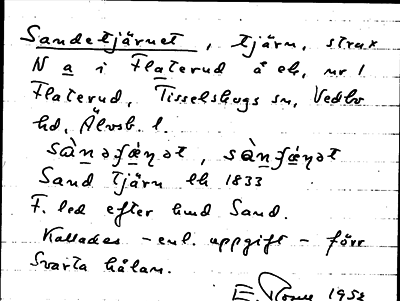 Sandetjärnet, tjärn, strax
N a i Flaterud å ek, nr 1
Flaterud, Tisselskogs sn, Vedbo
hd, Älvsb. l.
sàn̲əʃǽ̲ŋət, sàn̲ʃǽ̲ŋət
Sand tjärn Ek 1833
F. led efter hmd Sand.
Kallades – enl. uppgift – förr
Svarta hålan.
E. 1952